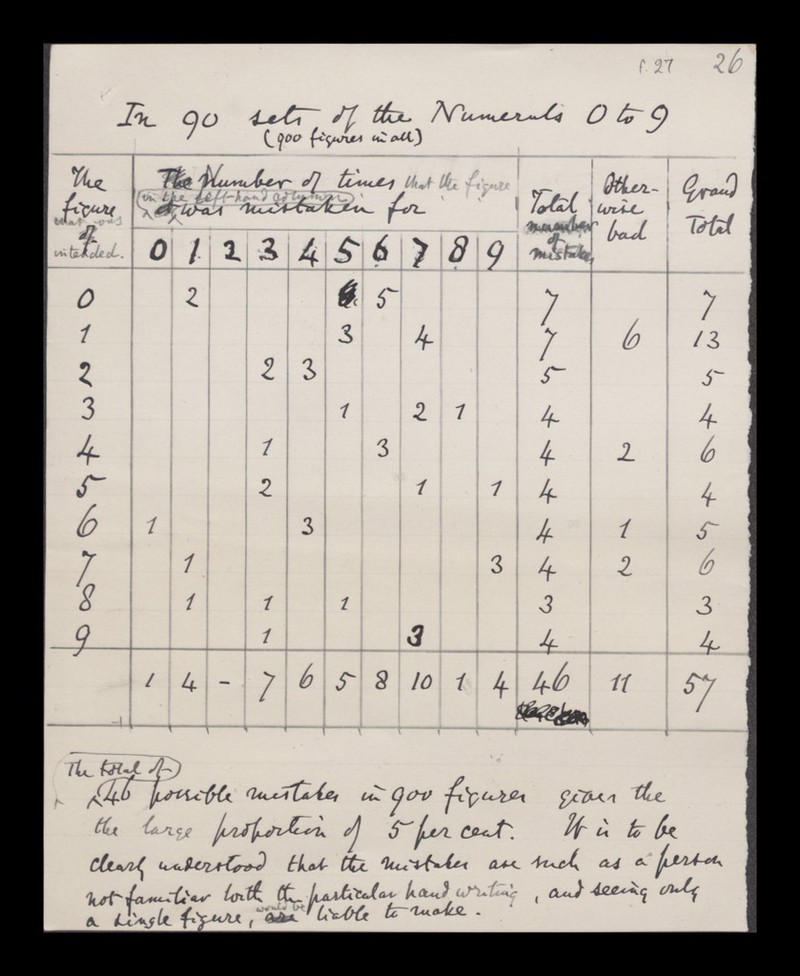 f. 27 26
In 90 sets of the Numerals 0 to 9
(900 figures in all)
The figure that was intended. The Number of times that the figure in the left-hand column was mistaken for Total number of mistakes Otherwise bad Grand Total
0 1 2 3 4 5 6 7 8 9
0 2 5 7 7
1 3 4 7 6 13
2 2 3 5 5
3 1 2 1 4 4
4 1 3 4 2 6
5 2 1 1 4 4
6 1 3 4 1 5
7 1 3 4 2 6
8 1 1 1 3 3
9 1 3 4 4
1 4 - 7 6 5 8 10 1 4 46 11 57
The total of
46 possible mistakes in 900 figures gives the
the large proportion of 5 per cent. It is to be
clearly understood that the mistakes are such as a person
not familiar with the particular hand writing, and seeing only
a single figure, would be liable to make.